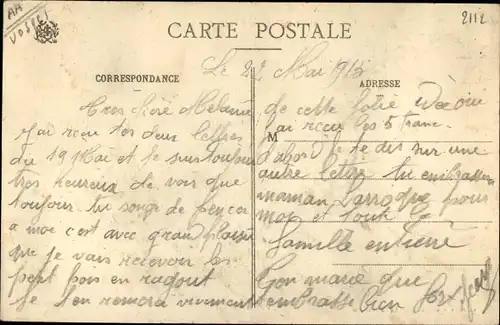 AA
VOSGES
2112
CARTE POSTALE
CORRESPONDANCE
ADRESSE
M
Le 22 Mai 1915
Tres chéré Mélanie
J'ai recu tes deux lettres
du 19 Mai et je suis toujour
tres heureux de voir que
toujour tu songe de
a moi c'est avec grand plaisir
que je vais recevoir les
petit pois en ragout
je t'en remerci vivement
de cette
j'ai recu les 5 franc
d'abord je te dis sur une
autre lettre tu embrassera
maman Larroque pour
moi et toute la
famille entiere
Ton marie que
t'embrasse bien fort